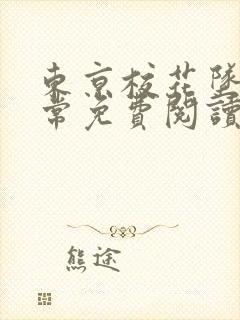 東京校花墜
常免費閱讀
熊途